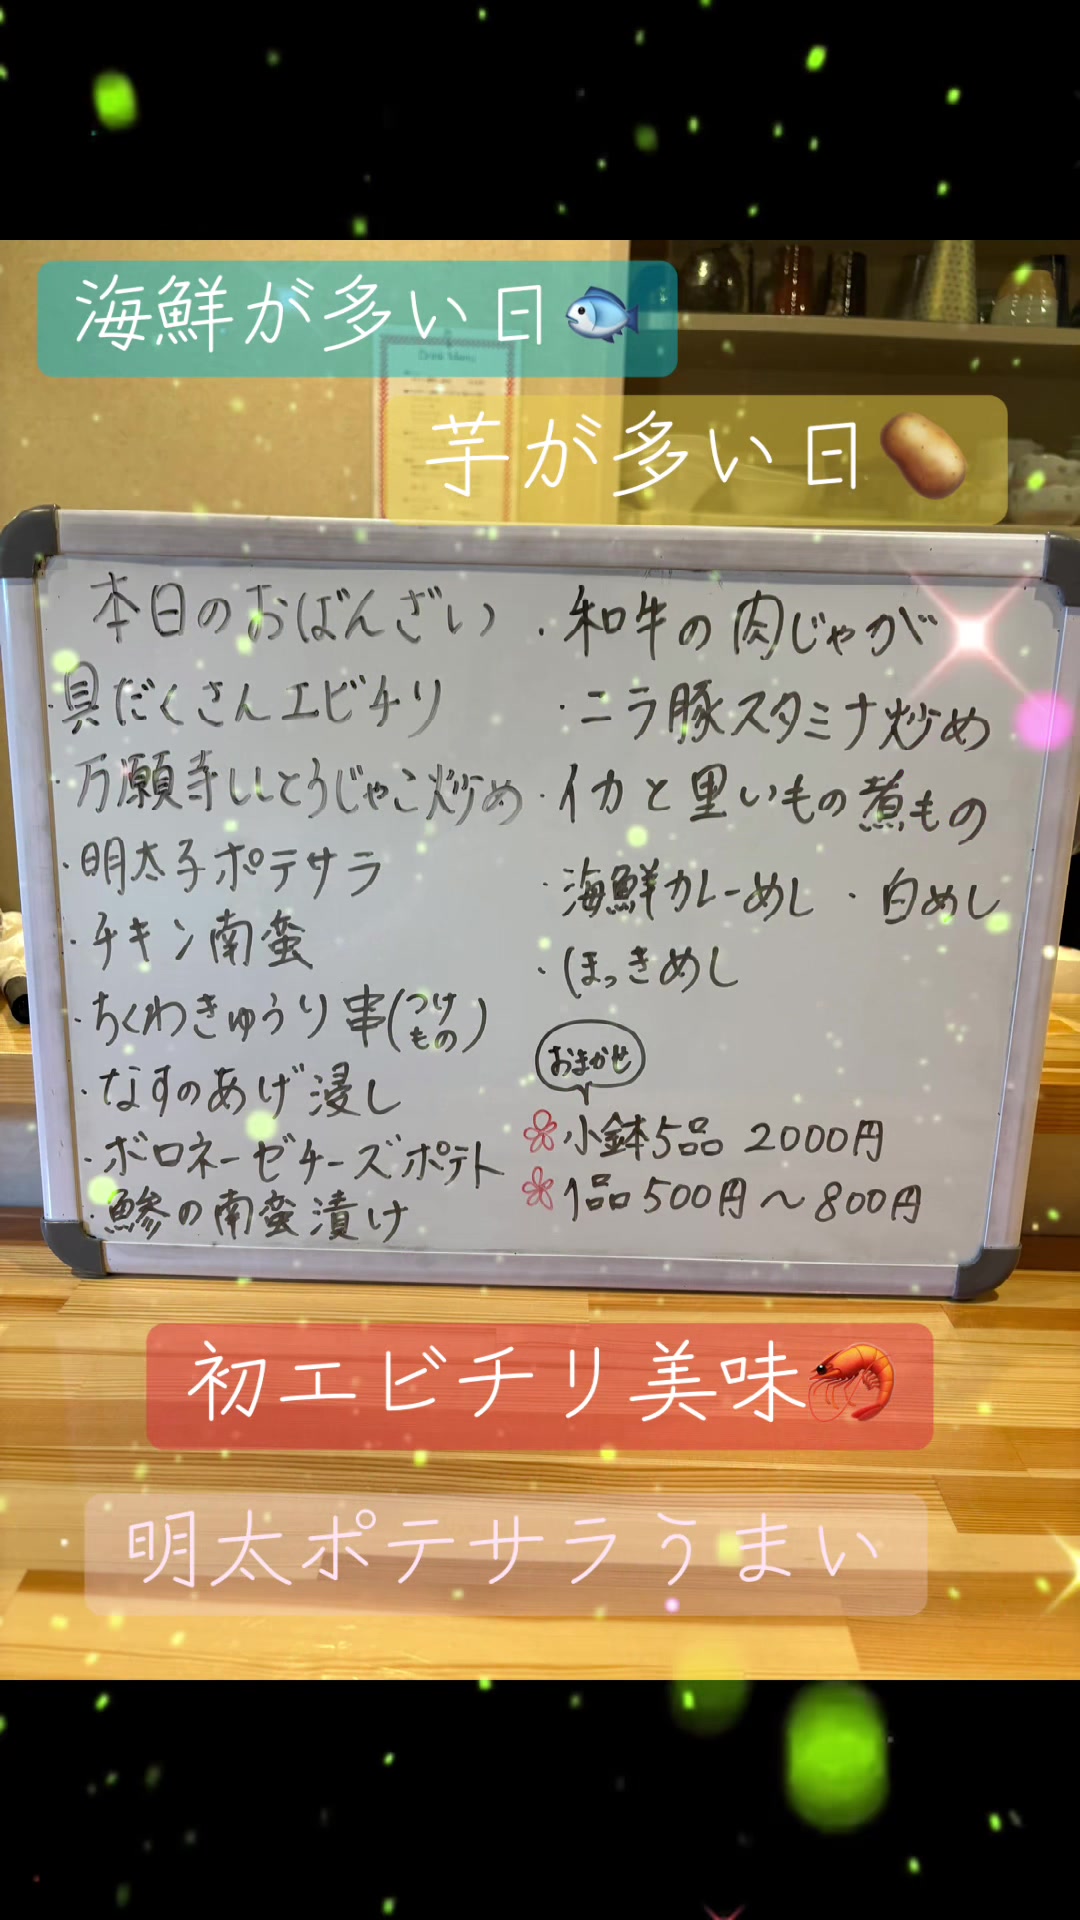 海鮮が多い日🐟
芋が多い日🥔
Drink Menu
本日のおばんざい
・具だくさんエビチリ
・万願寺ししとうじゃこ炒め
・明太子ポテサラ
・チキン南蛮
・ちくわきゅうり串(つけもの)
・なすのあげ浸し
・ボロネーゼチーズポテト
・鯵の南蛮漬け
・和牛の肉じゃが
・ニラ豚スタミナ炒め
・イカと里いもの煮もの
・海鮮カレーめし ・白めし
・ほっきめし
おまかせ
小鉢5品 2000円
1品500円～800円
初エビチリ美味🦐
明太ポテサラうまい